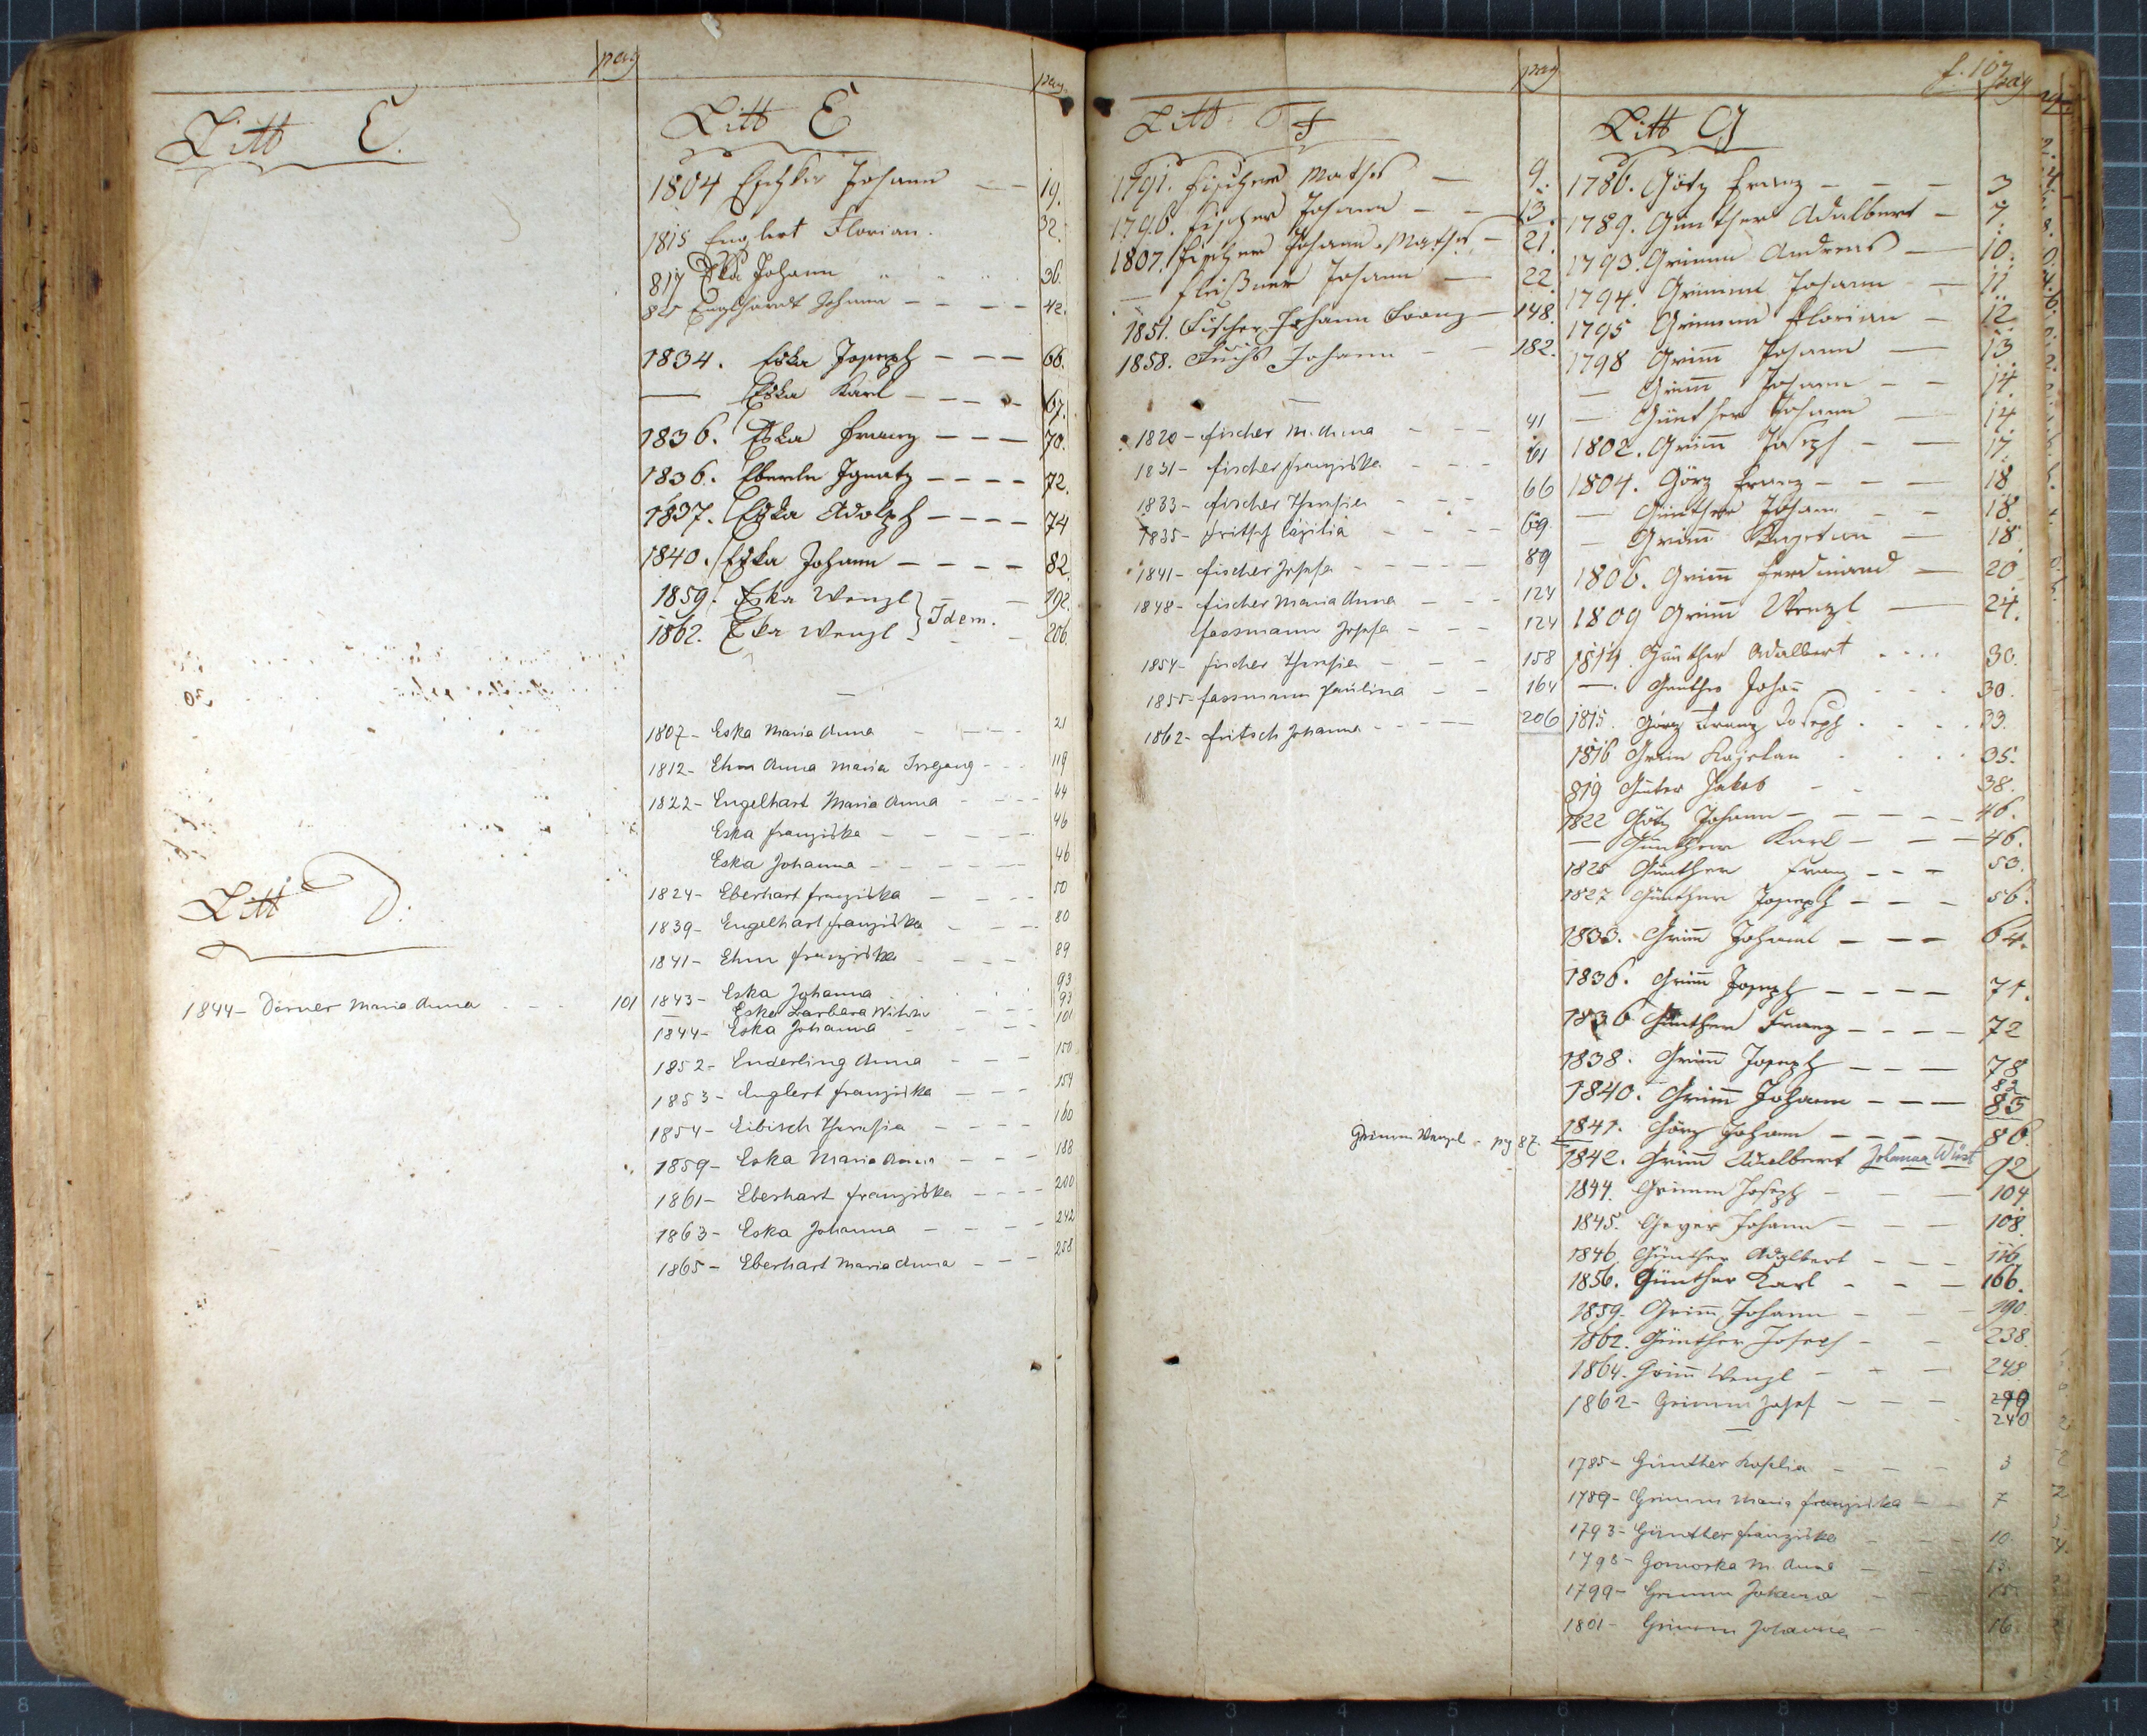 pag
Litt C.
Litt D.
1844 - Dörner Maria Anna - - 101
pag.
Litt E
1804 Johann - - 19.
1815 Englert Florian. 32.
817 Eska Johann 36.
825 Englhardt Johann - - - - 42.
1834. Eska Joseph - - - 66.
— Eska Karl - - - - 67.
1836. Eska Franz - - - 70.
1836. Eberle Ignatz - - - - 72.
1837. Eska Adolph - - - - 74
1840. Eska Johann - - - - 82.
1859. Eska Wenzl } - - 192.
Idem.
1862. Eska Wenzl - - 206.
1807 - Eska Maria Anna - - - - 21
1812 - Ehm Anna Maria Irrgang - - - 119
1822 - Engelhart Maria Anna - - - - 44
Eska Franziska - - - - - 46
Eska Johanna - - - - - 46
1824 - Eberhart Franziska - - - - 50
1839 - Engelhart Franziska - - - - 80
1841 - Ehm Franziska - - - - 89
1843 - Eska Johanna 93
Eska Barbara - - - 93
1844 - Eska Johanna - - - - 101
1852 - Enderling Anna - - - 150
1853 - Englert Franziska - - - 154
1854 - Eibisch Theresia - - - - 160
1859 - Eska Maria Anna - - - 188
1861 - Eberhart Franziska - - - - 200
1863 - Eska Johanna - - - - 242
1865 - Eberhart Maria Anna - - - 258
pag
Litt F
1791. Fischer Mathes — 9.
1796. Fischer Johann - - 13.
1807. Fischer Johann Mathes - 21.
— Fleißner Johann — 22.
1851. Fischer Johann Franz — 148.
1858. Fuchs Johann - - 182.
1820 - Fischer M. Anna - - - 41
1831 - Fischer Franziska - - - 61
1833 - Fischer Theresia - - - 66
1835 - Fritsch Cäzilia - - - - 69
1841 - Fischer Josefa - - - - - 89
1848 - Fischer Maria Anna - - - 124
Fassmann Josefa - - - 124
1854 - Fischer Theresia - - - 158
1855 - Fassmann Paulina - - 164
1862 - Fritsch Johanna - - - - 206
Grimm Wenzel - pag 87.
f. 107
pag
Litt G
1786. Götz Franz - - - 3
1789. Günther Adalbert - 7.
1793. Grimm Andreas — 10.
1794. Grimm Johann — 11
1795 Grimm Florian - 12
1798 Grimm Johann — 13
— Grimm Johann - - 14.
— Günther Johann — 14
1802. Grimm Joseph - — 17.
1804. Görz Franz - - — 18
— Günther Johann - - 18.
— Grimm Kajetan — 18.
1806. Grimm Ferdinand — 20
1809 Grimm Wenzl — 24.
1814. Günther Adalbert . . . . 30.
—. Günther Johann . . . 30.
1815. Görz Franz Joseph . . . . 33.
1816 Grimm Kajetan . . . . 35.
819 Günter Jakob - - 38.
1822 Götz Johann - - - - - 46.
— Günther Karl - - - 46.
1825 Günther Franz - - - 53.
1827 Günther Joseph - - - 56.
1833. Grimm Johann - - - 64.
1836. Grimm Joseph - - - - 71.
1836 Günther Franz - - - - 72
1838. Grimm Joseph - - - - 78
82
1840. Grimm Johann - - - 83
1841. Görz Johann - - - - 86
1842. Grimm Adalbert Johanna Wüst 92
1844. Grimm Joseph - - - 104
1845. Geyer Johann - - - 108.
1846 Günther Adalbert - - - 116.
1856. Günther Karl - - - 166.
1859. Grimm Johann - - - 190.
1862. Günther Joseph - - 238.
1864. Grimm Wenzl - - - 248.
1862 - Grimm Josef - - -
240
1785 - Günther Rosalia - - - 3
1789 - Grimm Maria Franziska - - 7
1793 - Günther Franziska - - - 10
1798 - Gomorska M. Anna - - - 13
1799 - Grimm Johanna - - - 15
1801 - Grimm Johanna - - - 16